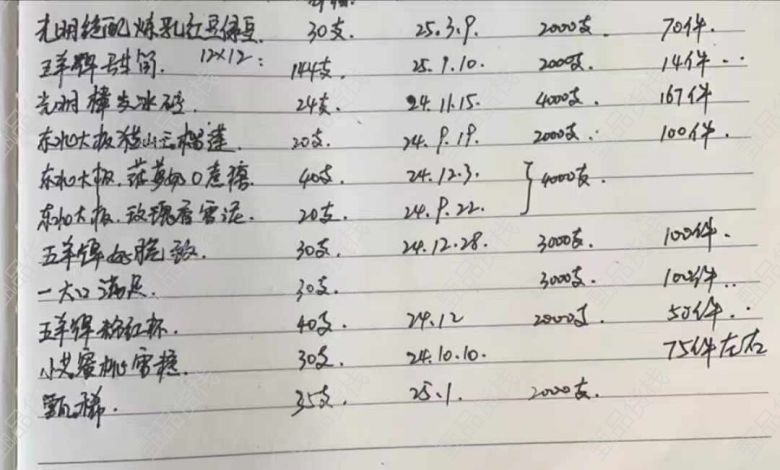 光明绝配炼乳红豆绿豆. 30支. 25.3.9. 2000支 70件.
五羊牌号筒. 12×12: 144支. 25.1.10. 2000支. 14件..
光明 冰砖. 24支. 24.11.15. 4000支. 167件
东北大板猫山王榴莲. 20支. 24.9.19. 2000支.. 100件.
东北大板. 40支. 24.12.3. } 4000支.
东北大板.玫瑰香雪泥. 20支. 24.9.22.
五羊牌 脆 . 30支. 24.12.28. 3000支. 100件.
一大口满足. 30支. 3000支. 100件..
五羊牌粉红杯. 40支. 24.12 2000支. 50件..
小 蜜桃雪糕. 30支. 24.10.10. 75件左右
甄稀. 35支. 25.1. 2000支.